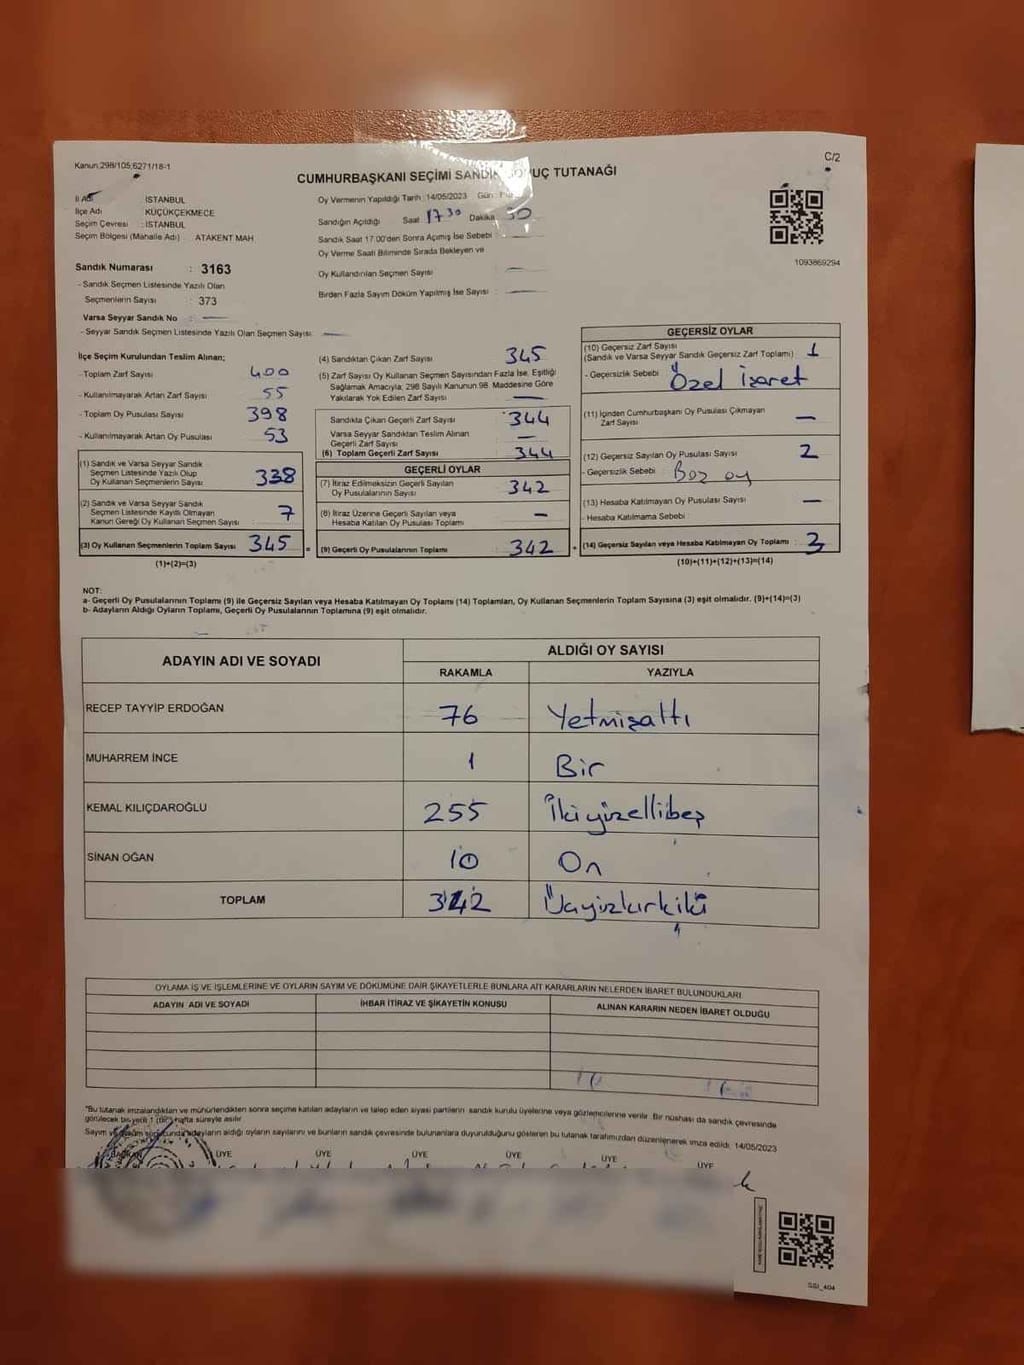 Kanun;298/105;6271/18-1
C/2
CUMHURBAŞKANI SEÇİMİ SANDIK UÇ TUTANAĞI
İl Adı İSTANBUL
İlçe Adı KÜÇÜKÇEKMECE
Seçim Çevresi : İSTANBUL
Seçim Bölgesi (Mahalle Adı) ATAKENT MAH
Sandık Numarası : 3163
- Sandık Seçmen Listesinde Yazılı Olan
Seçmenlerin Sayısı : 373
Varsa Seyyar Sandık No : —
- Seyyar Sandık Seçmen Listesinde Yazılı Olan Seçmen Sayısı: —
Oy Vermenin Yapıldığı Tarih :14/05/2023 Gün :
Sandığın Açıldığı Saat 1730 Dakika 30
Sandık Saat 17:00'den Sonra Açımış İse Sebebi : —
Oy Verme Saati Bitiminde Sırada Bekleyen ve
Oy Kullandırılan Seçmen Sayısı —
Birden Fazla Sayım Döküm Yapılmış İse Sayısı : —
1093869294
İlçe Seçim Kurulundan Teslim Alınan;
- Toplam Zarf Sayısı : 400
- Kullanılmayarak Artan Zarf Sayısı : 55
- Toplam Oy Pusulası Sayısı : 398
- Kullanılmayarak Artan Oy Pusulası : 53
(1) Sandık ve Varsa Seyyar Sandık
Seçmen Listesinde Yazılı Olup
Oy Kullanan Seçmenlerin Sayısı : 338
(2) Sandık ve Varsa Seyyar Sandık
Seçmen Listesinde Kayıtlı Olmayan
Kanun Gereği Oy Kullanan Seçmen Sayısı : 7
(3) Oy Kullanan Seçmenlerin Toplam Sayısı : 345
(1)+(2)=(3)
(4) Sandıktan Çıkan Zarf Sayısı : 345
(5) Zarf Sayısı Oy Kullanan Seçmen Sayısından Fazla İse, Eşitliği
Sağlamak Amacıyla; 298 Sayılı Kanunun 98. Maddesine Göre
Yakılarak Yok Edilen Zarf Sayısı : —
Sandıkta Çıkan Geçerli Zarf Sayısı : 344
Varsa Seyyar Sandıktan Teslim Alınan
Geçerli Zarf Sayısı : —
(6) Toplam Geçerli Zarf Sayısı : 344
GEÇERLİ OYLAR
(7) İtiraz Edilmeksizin Geçerli Sayılan
Oy Pusulalarının Sayısı : 342
(8) İtiraz Üzerine Geçerli Sayılan veya
Hesaba Katılan Oy Pusulası Toplamı : —
(9) Geçerli Oy Pusulalarının Toplamı : 342
GEÇERSİZ OYLAR
(10) Geçersiz Zarf Sayısı
(Sandık ve Varsa Seyyar Sandık Geçersiz Zarf Toplamı) : 1
- Geçersizlik Sebebi : Özel işaret
(11) İçinden Cumhurbaşkanı Oy Pusulası Çıkmayan
Zarf Sayısı : —
(12) Geçersiz Sayılan Oy Pusulası Sayısı : 2
- Geçersizlik Sebebi : Boz oy
(13) Hesaba Katılmayan Oy Pusulası Sayısı : —
- Hesaba Katılmama Sebebi :
(14) Geçersiz Sayılan veya Hesaba Katılmayan Oy Toplamı : 3
(10)+(11)+(12)+(13)=(14)
NOT:
a- Geçerli Oy Pusulalarının Toplamı (9) ile Geçersiz Sayılan veya Hesaba Katılmayan Oy Toplamı (14) Toplamları, Oy Kullanan Seçmenlerin Toplam Sayısına (3) eşit olmalıdır. (9)+(14)=(3)
b- Adayların Aldığı Oyların Toplamı, Geçerli Oy Pusulalarının Toplamına (9) eşit olmalıdır.
ADAYIN ADI VE SOYADI ALDIĞI OY SAYISI
RAKAMLA YAZIYLA
RECEP TAYYİP ERDOĞAN 76 Yetmişaltı
MUHARREM İNCE 1 Bir
KEMAL KILIÇDAROĞLU 255 İkiyüzellibeş
SİNAN OĞAN 10 On
TOPLAM 342 Üçyüzkırkiki
OYLAMA İŞ VE İŞLEMLERİNE VE OYLARIN SAYIM VE DÖKÜMÜNE DAİR ŞİKAYETLERLE BUNLARA AİT KARARLARIN NELERDEN İBARET BULUNDUKLARI
ADAYIN ADI VE SOYADI İHBAR İTİRAZ VE ŞİKAYETİN KONUSU ALINAN KARARIN NEDEN İBARET OLDUĞU
"Bu tutanak imzalandıktan ve mühürlendikten sonra seçime katılan adayların ve talep eden siyasi partilerin sandık kurulu üyelerine veya gözlemcilerine verilir. Bir nüshası da sandık çevresinde
görülecek bir yere 1 (bir) hafta süreyle asılır.
Sayım ve döküm sonucunda adayların aldığı oyların sayılarını ve bunların sandık çevresinde bulunanlara duyurulduğunu gösteren bu tutanak tarafımızdan düzenlenerek imza edildi. 14/05/2023
BAŞKAN ÜYE ÜYE ÜYE ÜYE ÜYE ÜYE
SSİ_404